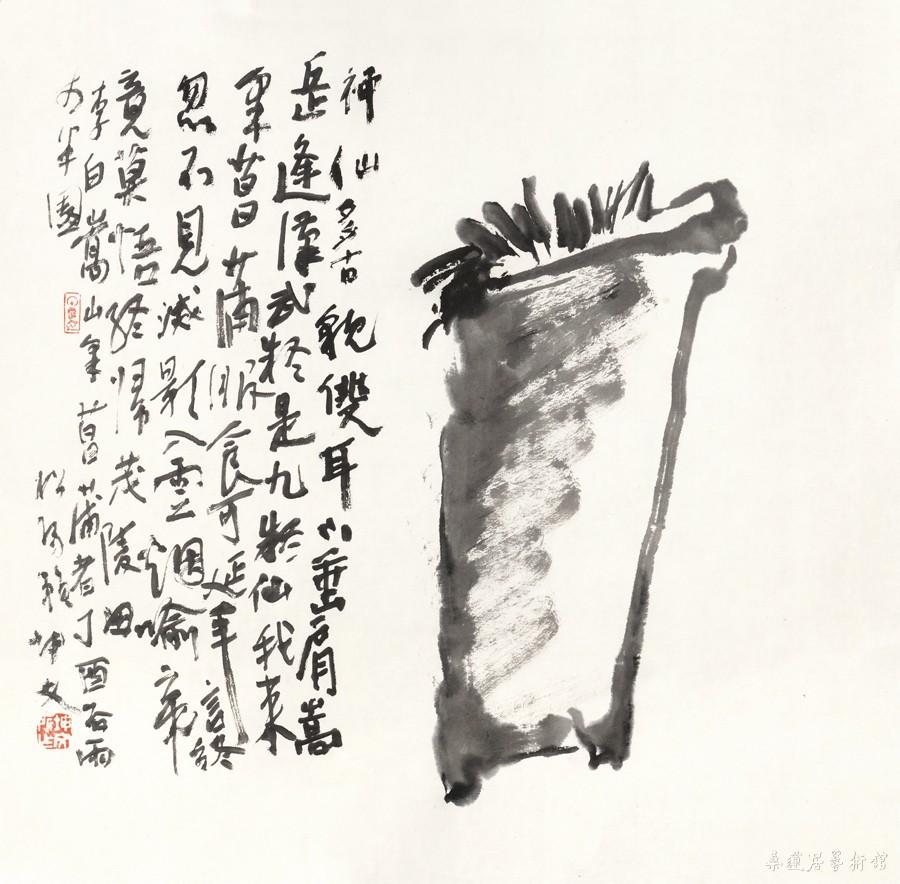 神仙多古貌雙耳下垂肩嵩
岳逢漢武疑是九疑仙我来
采菖蒲服食可延年言終
忽不見滅影入雲烟喻帝
竟莫悟終歸茂陵田
李白嵩山采菖蒲者丁酉谷雨
於半園
坤文
桑蓮居藝術館